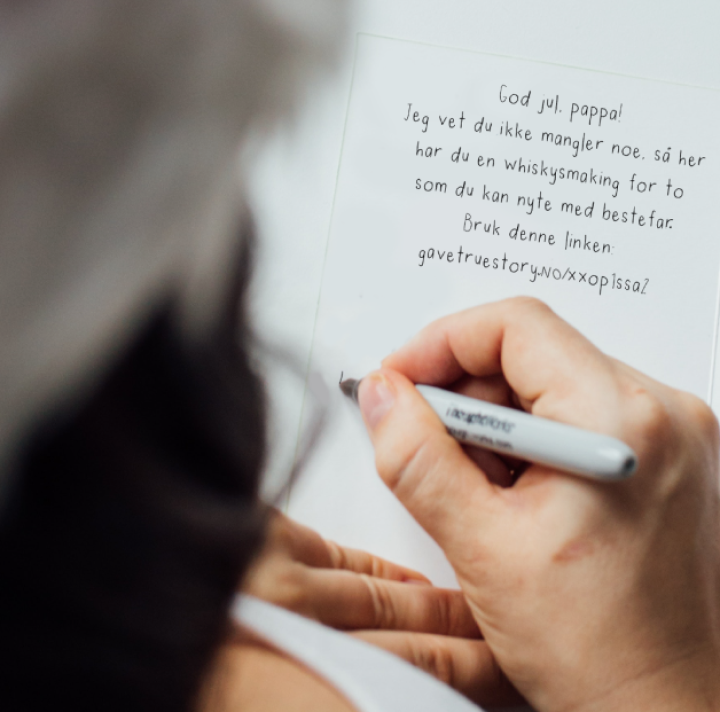 God jul, pappa!
Jeg vet du ikke mangler noe, så her
har du en whiskysmaking for to
som du kan nyte med bestefar.
Bruk denne linken:
gavetruestory.no/xxop1ssa2